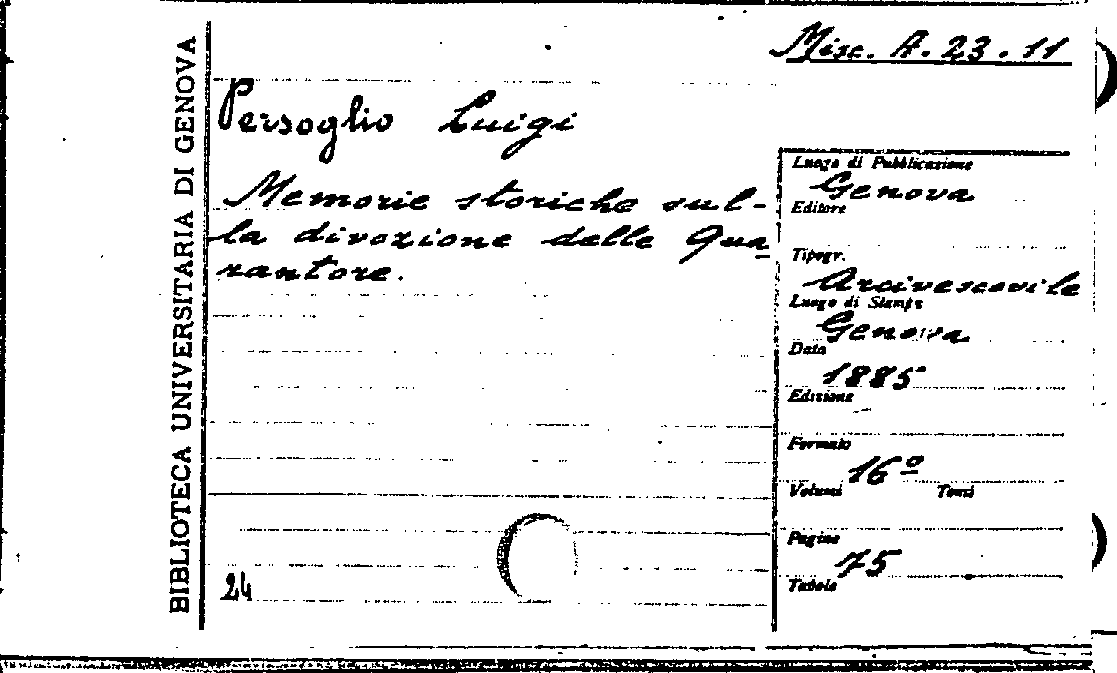 BIBLIOTECA UNIVERSITARIA DI GENOVA
Misc. A. 23. 11
Persoglio Luigi
Memorie storiche sul-
la divozione delle Qua
rantore.
24
Luogo di Pubblicazione
Genova
Editore
Tipogr.
Arcivescovile
Luogo di Stampa
Genova
Data
1885
Edizione
Formato
16º
Volumi Tomi
Pagine
75
Tabole